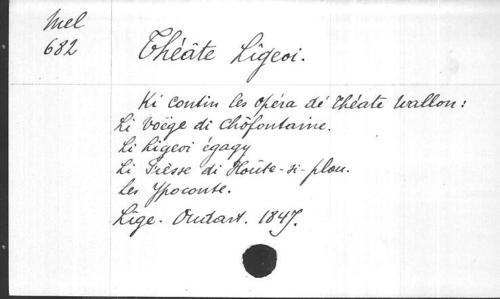 Mel
682
Théâte Lîgeoi.
Ki contin les opéra dé théate wallon:
Li Voëge di Chôfontaine.
Li Ligeoi égagy
Li Fièsse di Hoûte-si-plou.
Les Ypoconte.
Lîge. Oudart. 1847.